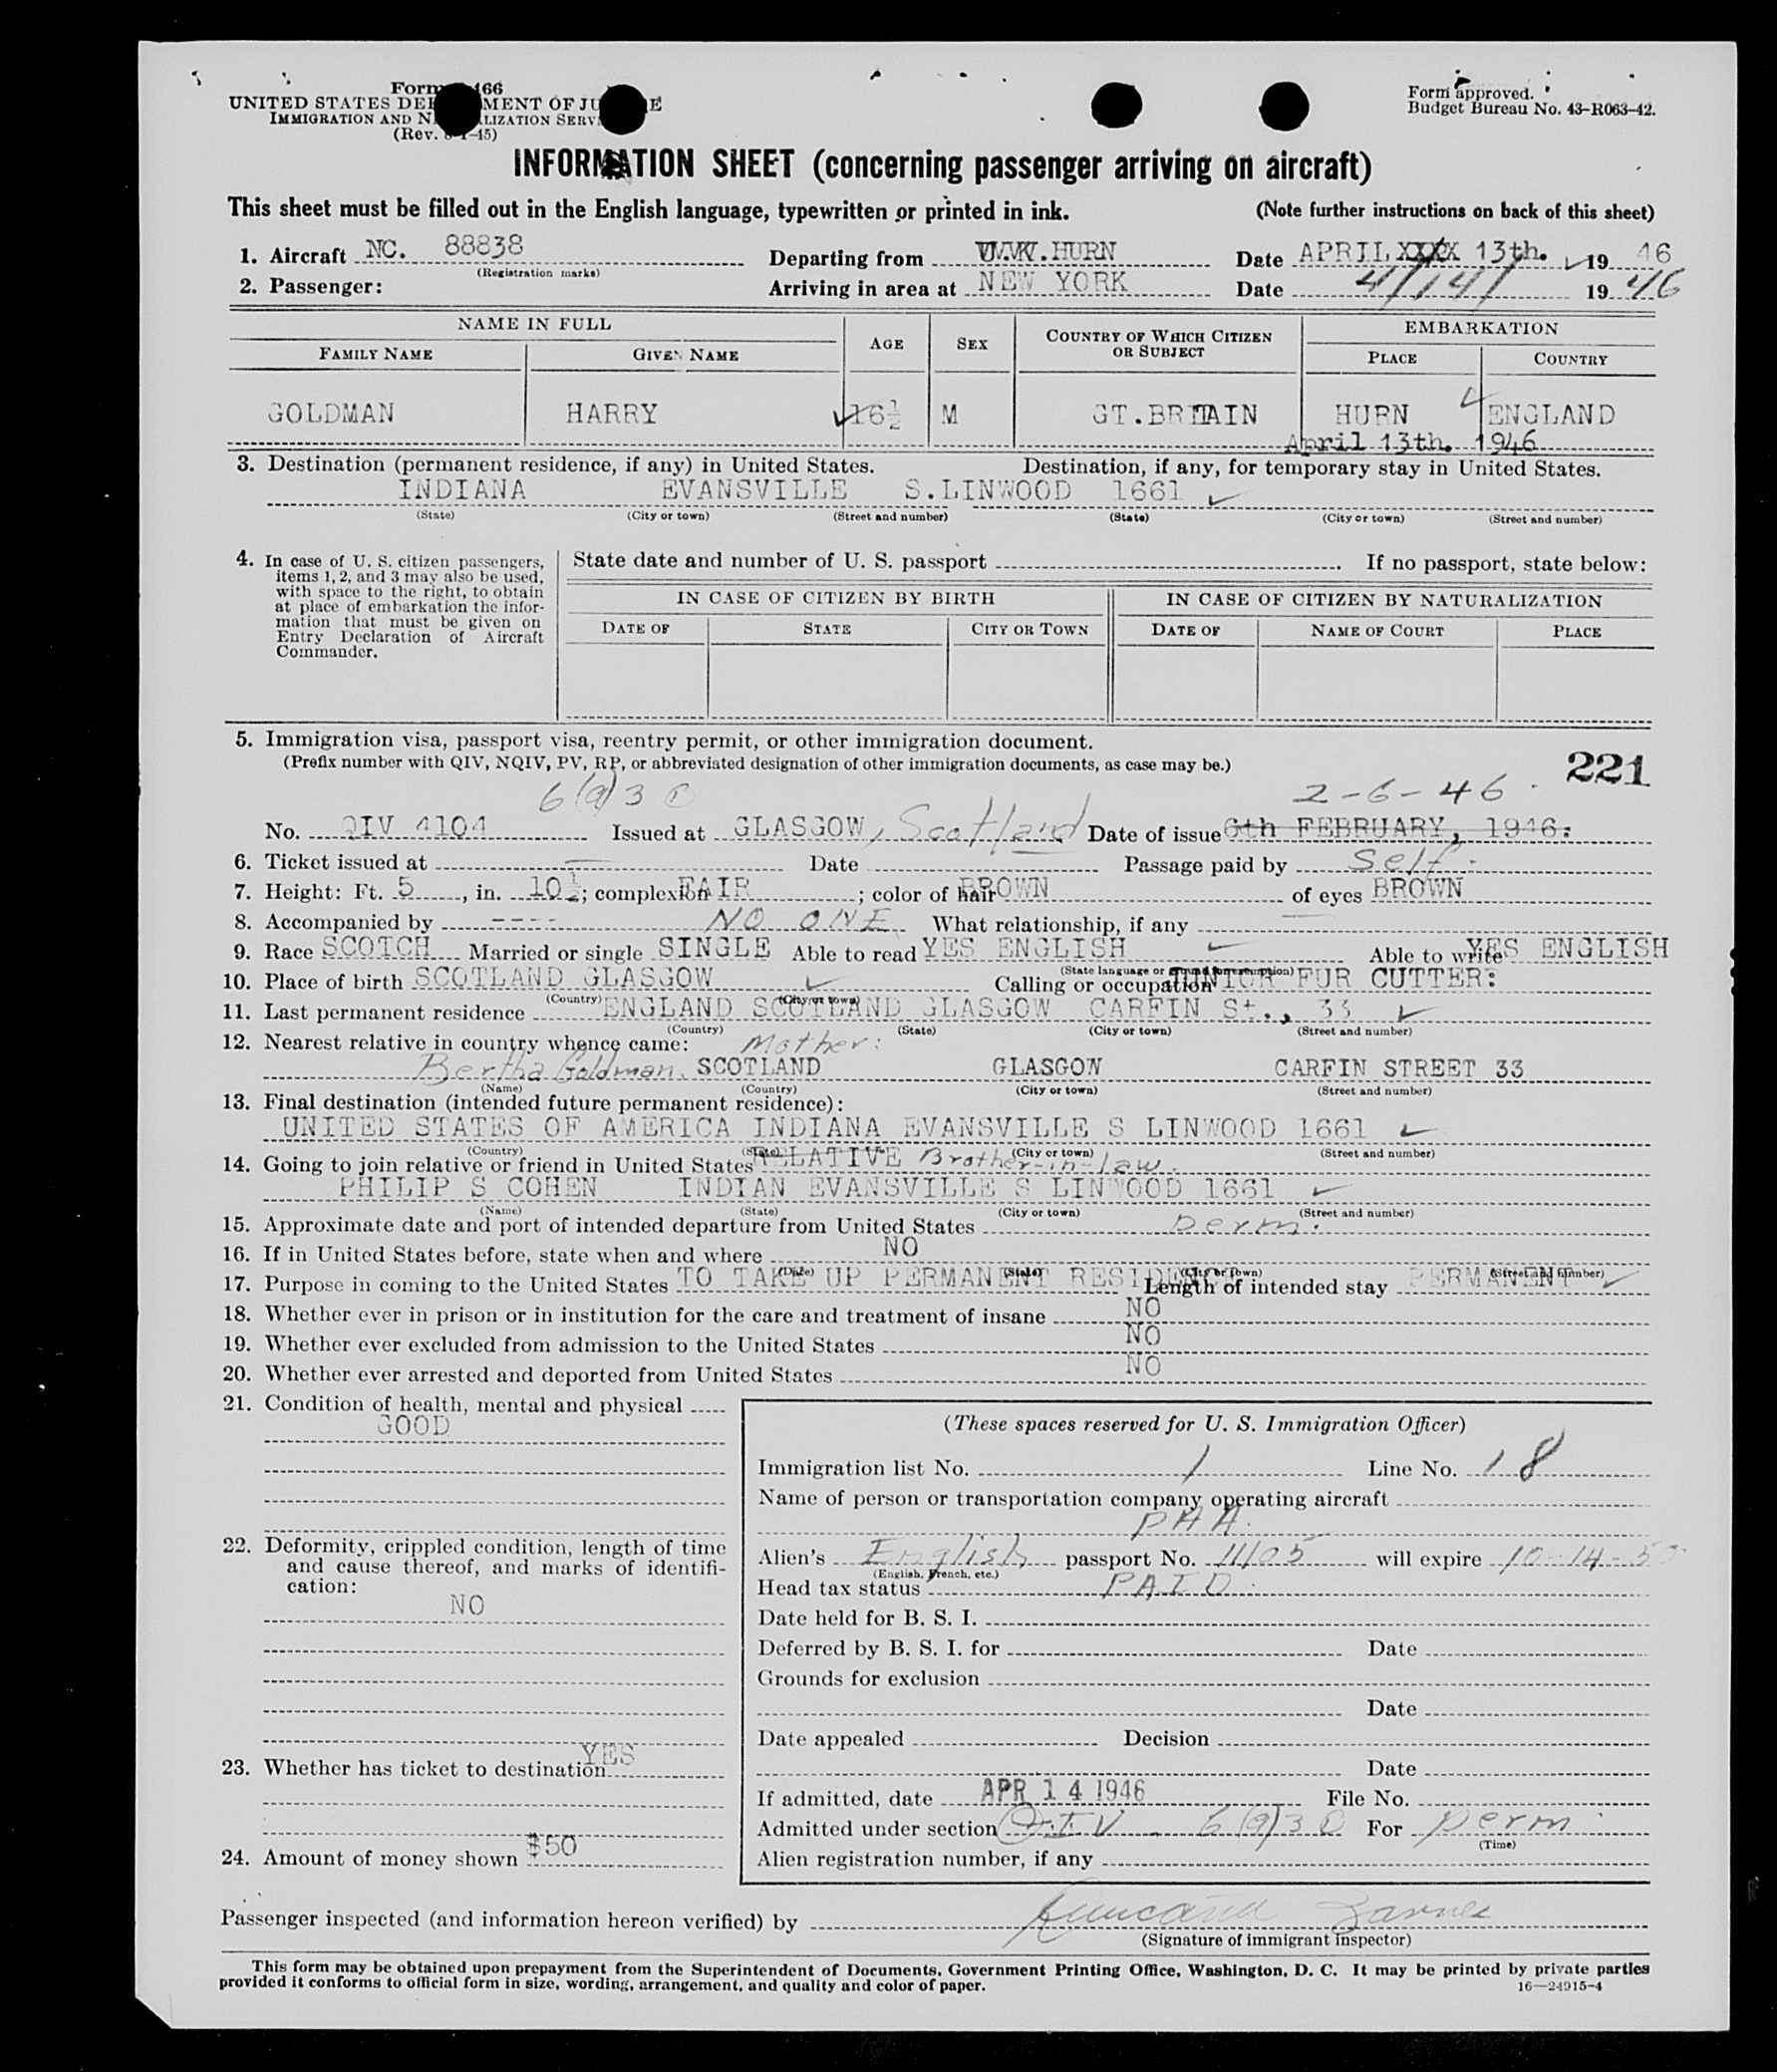 Form 466
UNITED STATES DEPARTMENT OF JUSTICE
IMMIGRATION AND NATURALIZATION SERVICE
(Rev. 8-1-45)
Form approved.
Budget Bureau No. 43-R063-42.
INFORMATION SHEET (concerning passenger arriving on aircraft)
This sheet must be filled out in the English language, typewritten or printed in ink. (Note further instructions on back of this sheet)
1. Aircraft NC. 88838 Departing from HURN Date APRIL 13th. 19 46
(Registration marks)
2. Passenger: Arriving in area at NEW YORK Date 4/14/ 19 46
NAME IN FULL AGE SEX COUNTRY OF WHICH CITIZEN OR SUBJECT EMBARKATION
FAMILY NAME GIVEN NAME PLACE COUNTRY
GOLDMAN HARRY 16½ M GT.BRITAIN HURN ENGLAND
April 13th. 1946
3. Destination (permanent residence, if any) in United States. Destination, if any, for temporary stay in United States.
INDIANA EVANSVILLE S.LINWOOD 1661
(State) (City or town) (Street and number) (State) (City or town) (Street and number)
4. In case of U. S. citizen passengers, items 1, 2, and 3 may also be used, with space to the right, to obtain at place of embarkation the information that must be given on Entry Declaration of Aircraft Commander.
State date and number of U. S. passport If no passport, state below:
IN CASE OF CITIZEN BY BIRTH IN CASE OF CITIZEN BY NATURALIZATION
DATE OF STATE CITY OR TOWN DATE OF NAME OF COURT PLACE
5. Immigration visa, passport visa, reentry permit, or other immigration document.
(Prefix number with QIV, NQIV, PV, RP, or abbreviated designation of other immigration documents, as case may be.)
221
6(a)3 2-6-46
No. QIV 4104 Issued at GLASGOW, Scotland Date of issue 6th FEBRUARY, 1946.
6. Ticket issued at Date Passage paid by Self
7. Height: Ft. 5, in. 10½; complexion FAIR; color of hair BROWN of eyes BROWN
8. Accompanied by ---- NO ONE What relationship, if any
9. Race SCOTCH Married or single SINGLE Able to read YES ENGLISH Able to write YES ENGLISH
(State language or ground for exemption)
10. Place of birth SCOTLAND GLASGOW Calling or occupation JUNIOR FUR CUTTER:
(Country) (City or town)
11. Last permanent residence ENGLAND SCOTLAND GLASGOW CARFIN St., 33
(Country) (State) (City or town) (Street and number)
12. Nearest relative in country whence came: Mother:
Bertha Goldman. SCOTLAND GLASGOW CARFIN STREET 33
(Name) (Country) (City or town) (Street and number)
13. Final destination (intended future permanent residence):
UNITED STATES OF AMERICA INDIANA EVANSVILLE S LINWOOD 1661
(Country) (State) (City or town) (Street and number)
14. Going to join relative or friend in United States RELATIVE Brother-in-law.
PHILIP S COHEN INDIAN EVANSVILLE S LINWOOD 1661
(Name) (State) (City or town) (Street and number)
15. Approximate date and port of intended departure from United States perm.
16. If in United States before, state when and where NO
(Date) (State) (City or town) (Street and number)
17. Purpose in coming to the United States TO TAKE UP PERMANENT RESIDENT Length of intended stay PERMANENT
18. Whether ever in prison or in institution for the care and treatment of insane NO
19. Whether ever excluded from admission to the United States NO
20. Whether ever arrested and deported from United States NO
21. Condition of health, mental and physical
GOOD
22. Deformity, crippled condition, length of time and cause thereof, and marks of identification:
NO
23. Whether has ticket to destination YES
24. Amount of money shown $50
(These spaces reserved for U. S. Immigration Officer)
Immigration list No. 1 Line No. 18
Name of person or transportation company operating aircraft
PAA.
Alien's English passport No. 11105 will expire 10-14-50
(English, French, etc.)
Head tax status PAID
Date held for B. S. I.
Deferred by B. S. I. for Date
Grounds for exclusion
Date
Date appealed Decision
Date
If admitted, date APR 14 1946 File No.
Admitted under section QIV - 6(a)3 For perm
(Time)
Alien registration number, if any
Passenger inspected (and information hereon verified) by
(Signature of immigrant inspector)
This form may be obtained upon prepayment from the Superintendent of Documents, Government Printing Office, Washington, D. C. It may be printed by private parties
provided it conforms to official form in size, wording, arrangement, and quality and color of paper. 16—24915-4